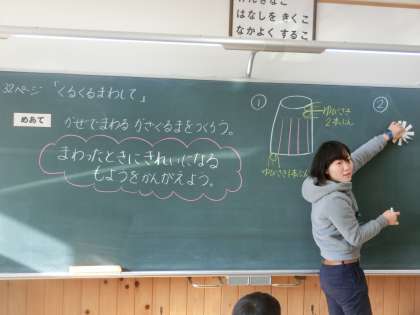 はなしを きくこ
なかよく するこ
32ページ 「くるくるまわして」
①
②
ゆびさき
2本ぶん
めあて
かぜでまわる かざぐるまをつくろう。
まわったときにきれいになる
もようをかんがえよう。